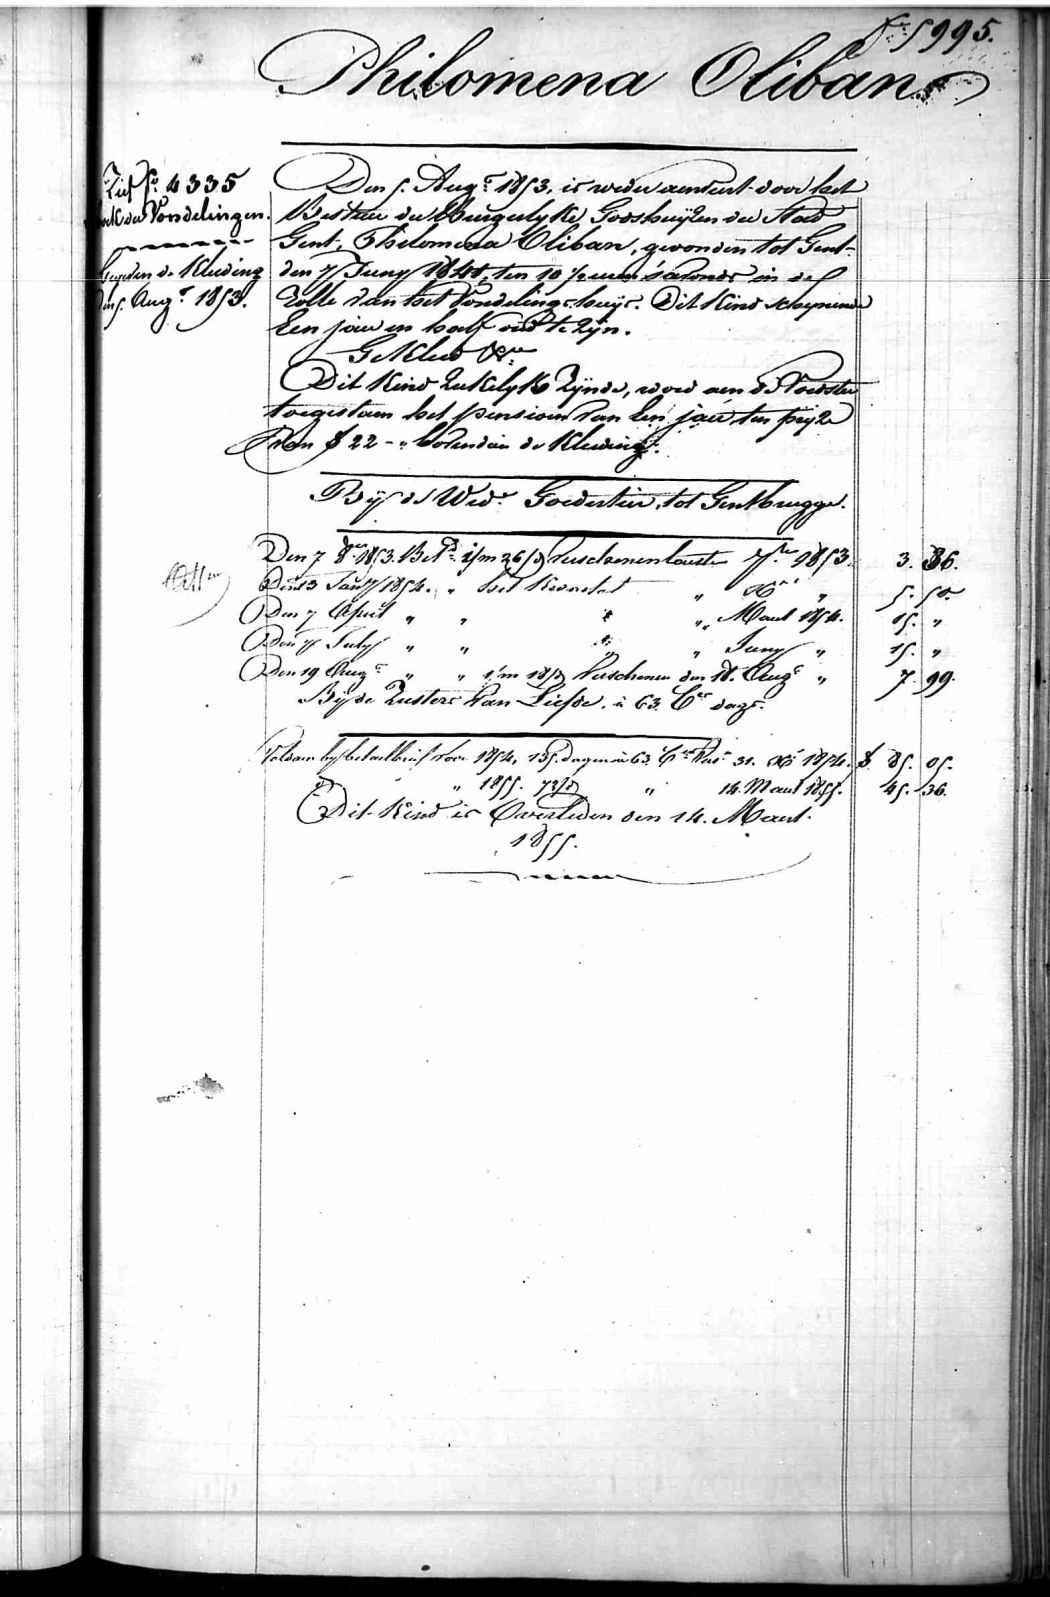 N° 5995.
Philomena Oliban
Zie f° 4335
boek der Vondelingen.
Gegeven de Kleding
den 5. Aug.t 1853.
Den 5. Aug.t 1853, is weder aenveert door het
Bestier der Burgerlyke Godshuyzen der Stad
Gent, Philomena Oliban, gevonden tot Gent
den 7 Juny 1848, ten 10 ½ uren 's avonds in de
Rolle van het Vondelingshuys. Dit Kind schynende
Een jaer en half oud te zyn.
Gekleed &a
Dit Kind Ziekelyk Zynde, word aen de Voedster
toegestaen het pensioen van Een jaer ten pryze
van f 22 - " bovendien de Kleding.
By de Wed.e Goedertier, tot Gentbrugge.
Den 7 8.ber 1853. Bet.d 1/m 26/d Verschenen laeste 7.ber 1853. 3. 36.
Den 13 Jan.y 1854. " het Kwartael " X.r " 5. 50.
Den 7 April " " " " Maert 1854. 15. "
Den 7 July " " " " Juny " 15. "
Den 19 Aug.t " " 1/m 18/d Verschenen den 18. Aug.t " 7. 99.
By de Zusters van Liefde. à 63 C.es daegs.
Voldaen by betaelbrief voor 1854, 135 dagen à 63 C.es Vers. 31. X.r 1854. f 85. 05.
" 1855. 72/d " 14 Maert 1855. 45. 36.
Dit Kind is Overleden den 14. Maert
1855.